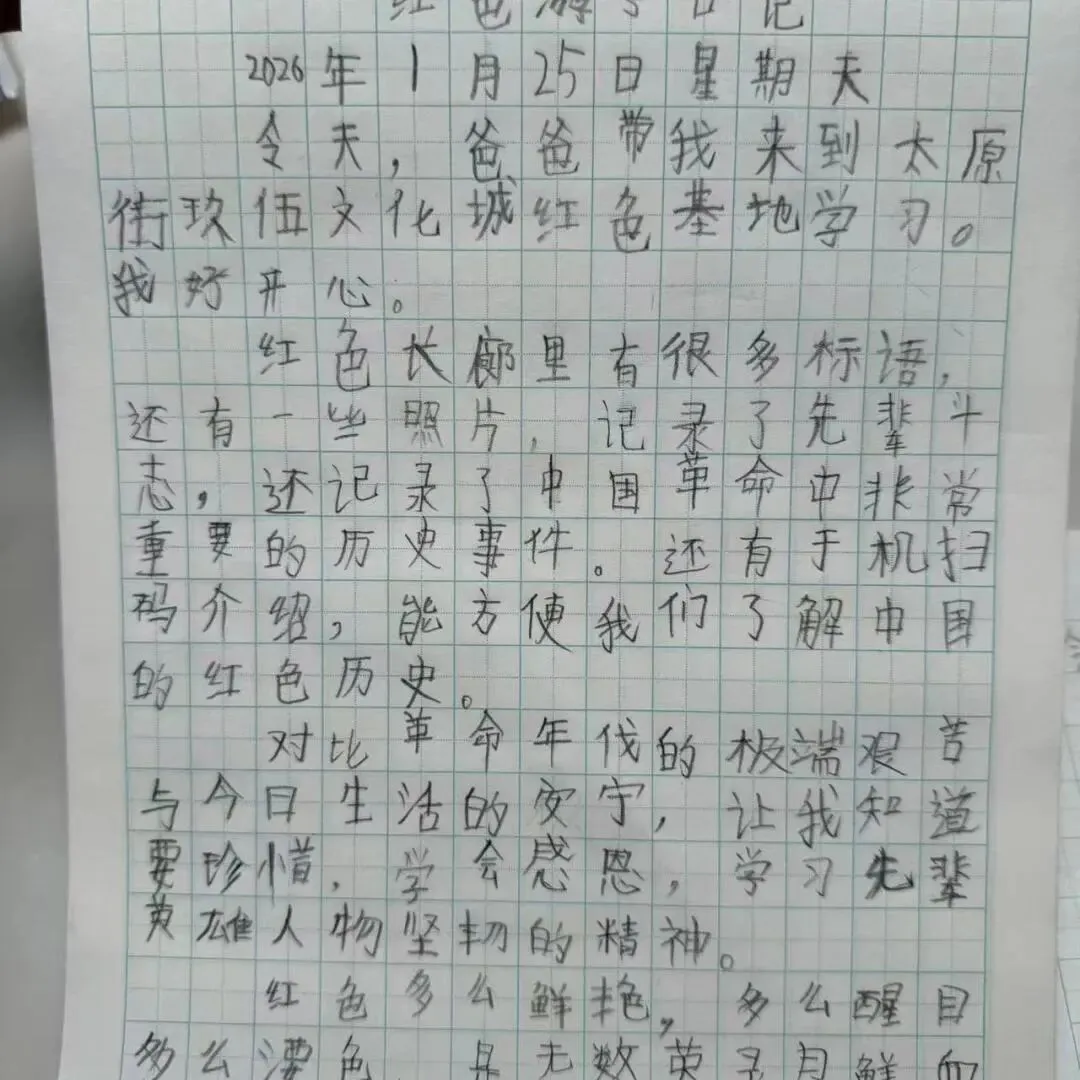 红色游学日记
2026年1月25日星期天
今天，爸爸带我来到太原
街玖伍文化城红色基地学习。
我好开心。
红色长廊里有很多标语，
还有一些照片，记录了先辈斗
志，还记录了中国革命中非常
重要的历史事件。还有手机扫
码介绍，能方便我们了解中国
的红色历史。
对比革命年代的极端艰苦
与今日生活的安宁，让我知道
要珍惜，学会感恩，学习先辈
英雄人物坚韧的精神。
红色多么鲜艳，多么醒目
多么漂色，是无数英